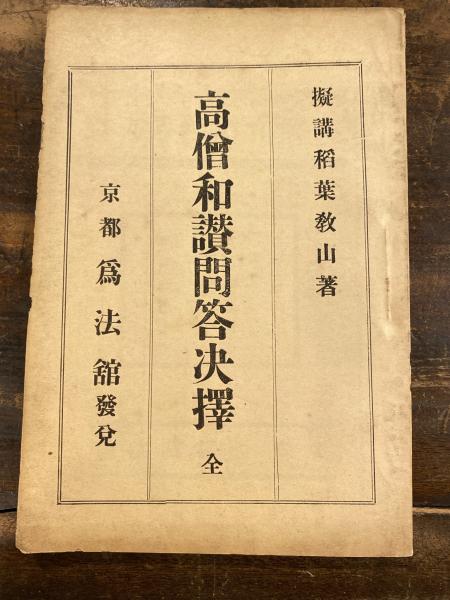 擬講稻葉敎山著
高僧和讃問答决擇 全
京都爲法舘發兌